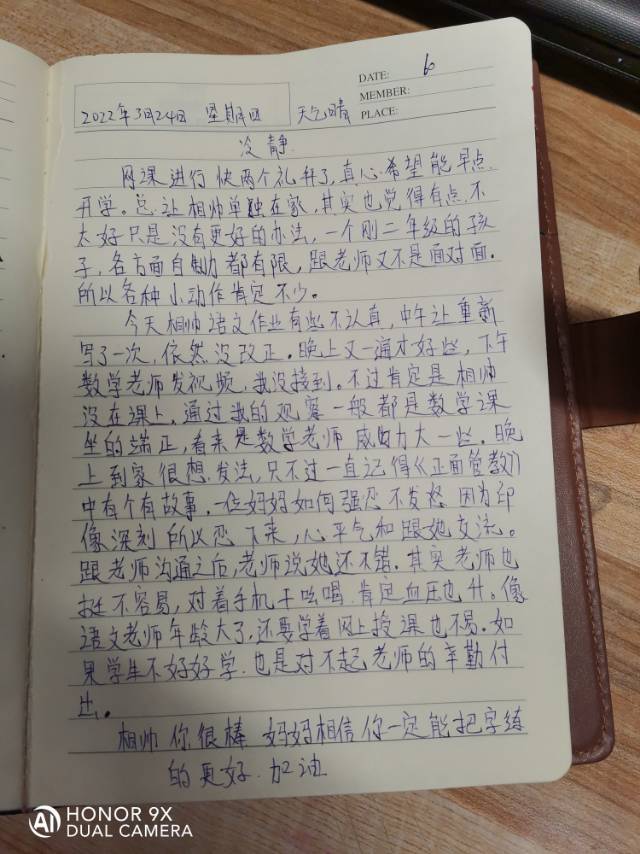 DATE: 6
MEMBER:
PLACE:
2022年3月24日 星期四 天气晴
冷静
网课进行快两个礼拜了,真心希望能早点
开学。总让相帅单独在家,其实也觉得有点不
太好只是没有更好的办法,一个刚二年级的孩
子,各方面自制力都有限,跟老师又不是面对面.
所以各种小动作肯定不少。
今天相帅语文作业有些不认真,中午让重新
写了一次,依然没改正.晚上又一遍才好些,下午
数学老师发视频,我没接到.不过肯定是相帅
没在课上.通过我的观察一般都是数学课
坐的端正,看来是数学老师威力大一些.晚
上到家很想发法,只不过一直记得《正面管教》
中有个有故事.一位妈妈如何强忍不发怒 因为印
像深刻所以忍下来,心平气和跟她交流。
跟老师沟通之后,老师说她还不错.其实老师也
挺不容易,对着手机干吆喝.肯定血压也升。像
语文老师年龄大了,还要学着网上授课也不易.如
果学生不好好学.也是对不起老师的辛勤付
出。
相帅你很棒 妈妈相信你一定能把字练
的更好.加油
HONOR 9X
AI DUAL CAMERA